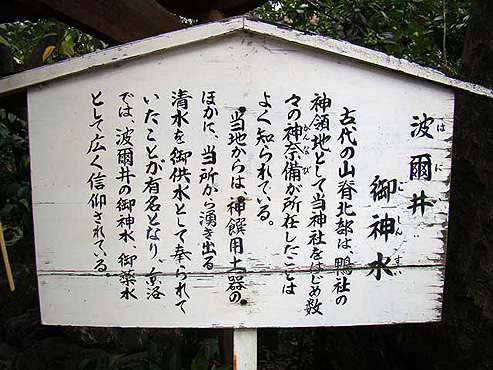 波爾井
はに
御神水
ごしんすい
古代の山背北部は、鴨社の
神領地として当神社をはじめ数
々の神奈備が所在したことは
かんなび
よく知られている。
当地からは、神饌用土器の
ほかに、当所から湧き出る
清水を御供水として奉られて
いたことが有名となり、京洛
では、波爾井の御神水、御薬水
として広く信仰されている。